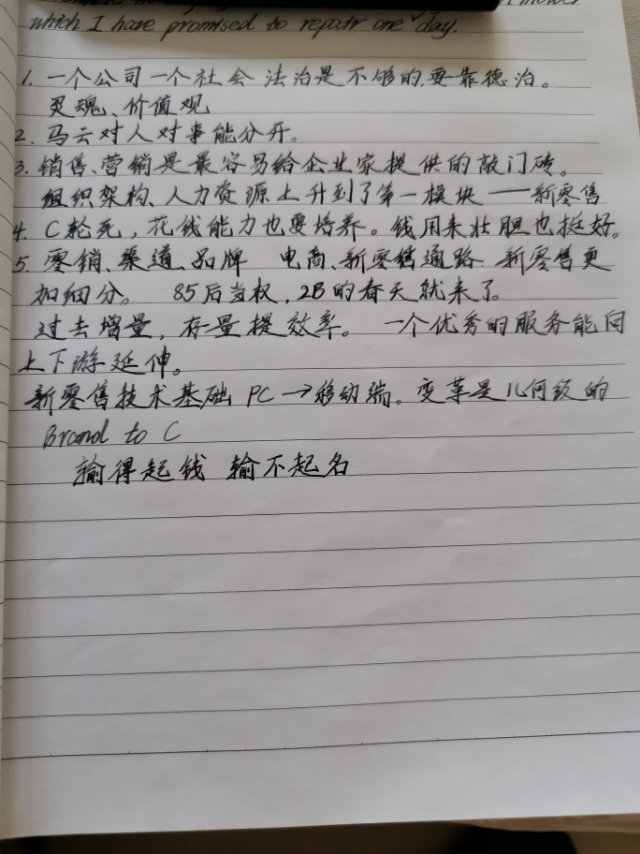 which I have promised to repair one day.
1. 一个公司一个社会 法治是不够的,要靠德治。
灵魂、价值观
2. 马云对人对事能分开。
3. 销售、营销是最容易给企业家提供的敲门砖。
组织架构、人力资源上升到了第一模块——新零售
4. C轮死,花钱能力也要培养。钱用来壮胆也挺好。
5. 零销、渠道、品牌 电商、新零售通路. 新零售更
加细分。 85后当权,2B的春天就来了。
过去增量,存量提效率。 一个优秀的服务能向
上下游延伸。
新零售技术基础 PC→移动端。变革是几何级的
Brand to C
输得起钱 输不起名